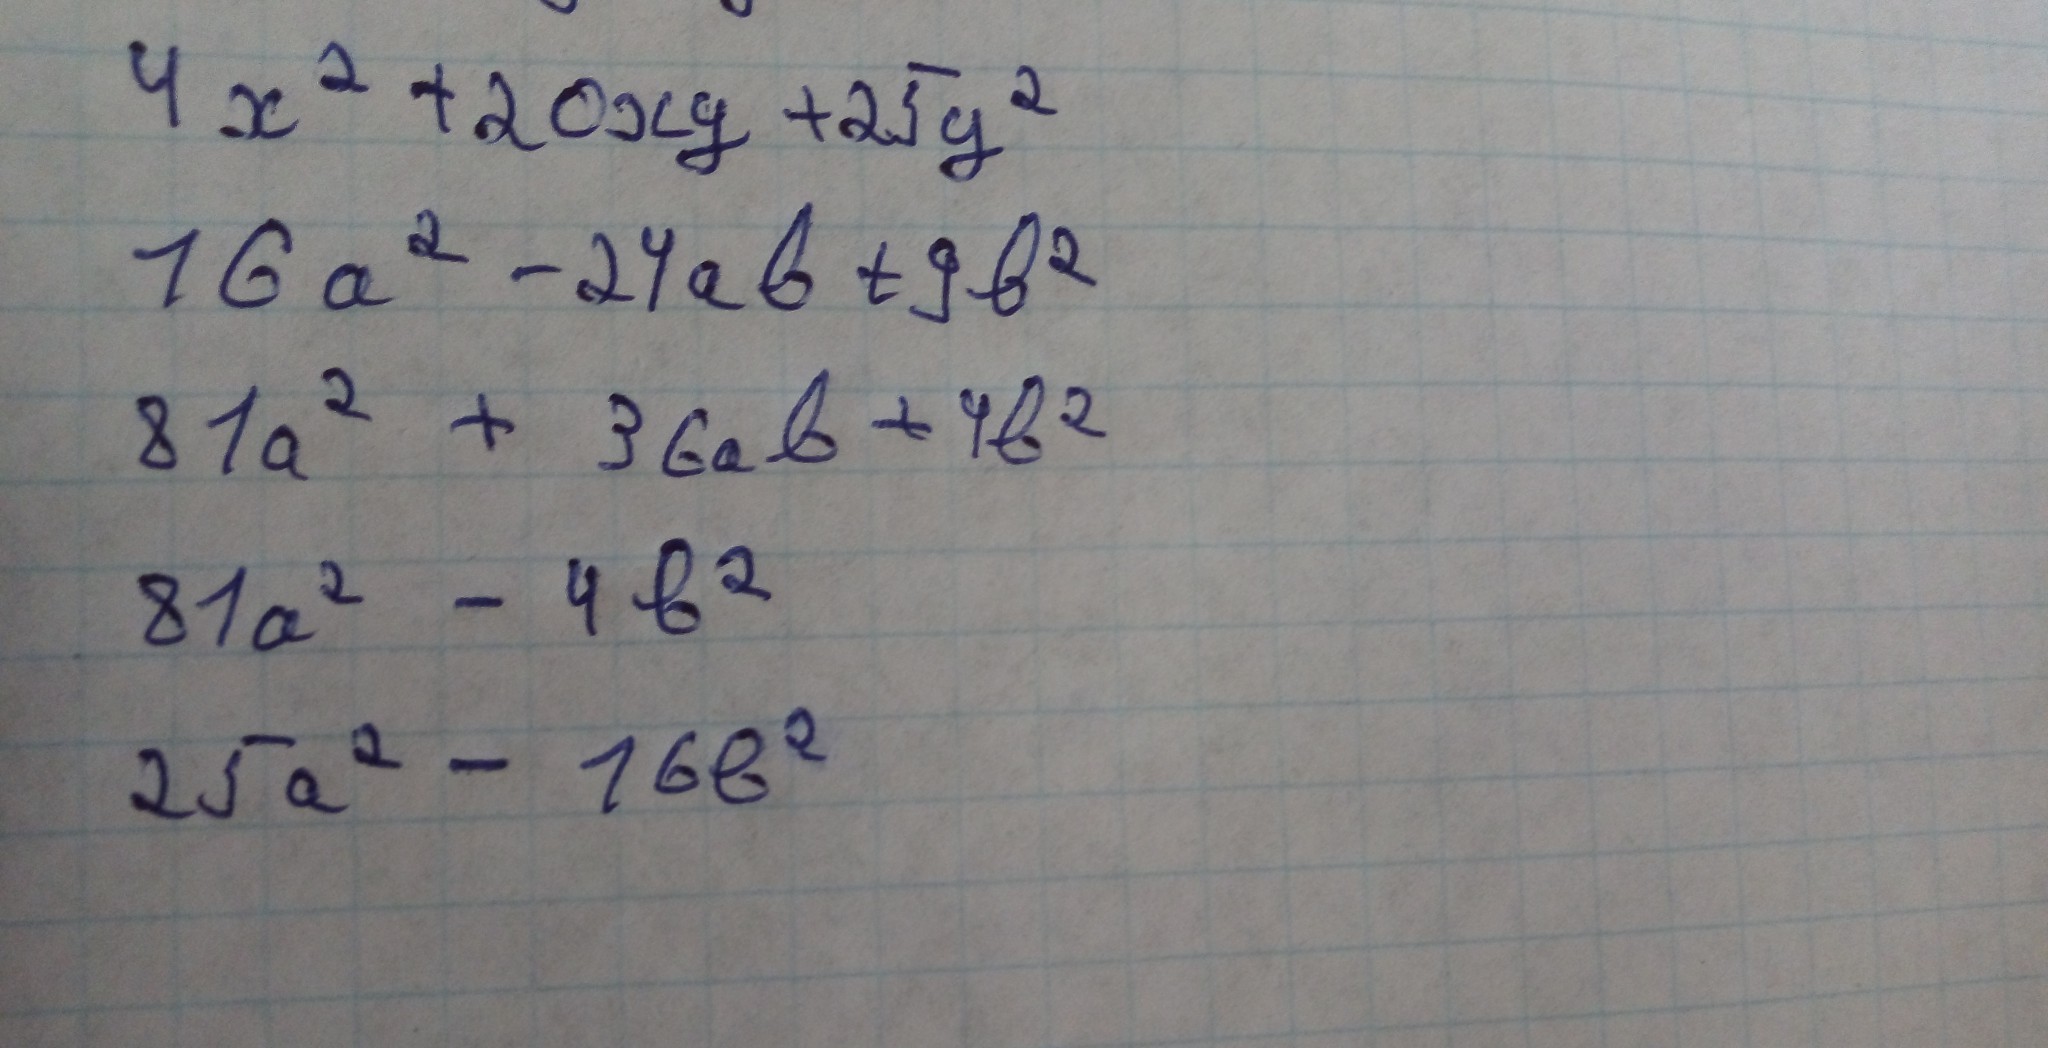 4x² + 20xy + 25y²
16a² - 24ab + 9b²
81a² + 36ab + 4b²
81a² - 4b²
25a² - 16b²